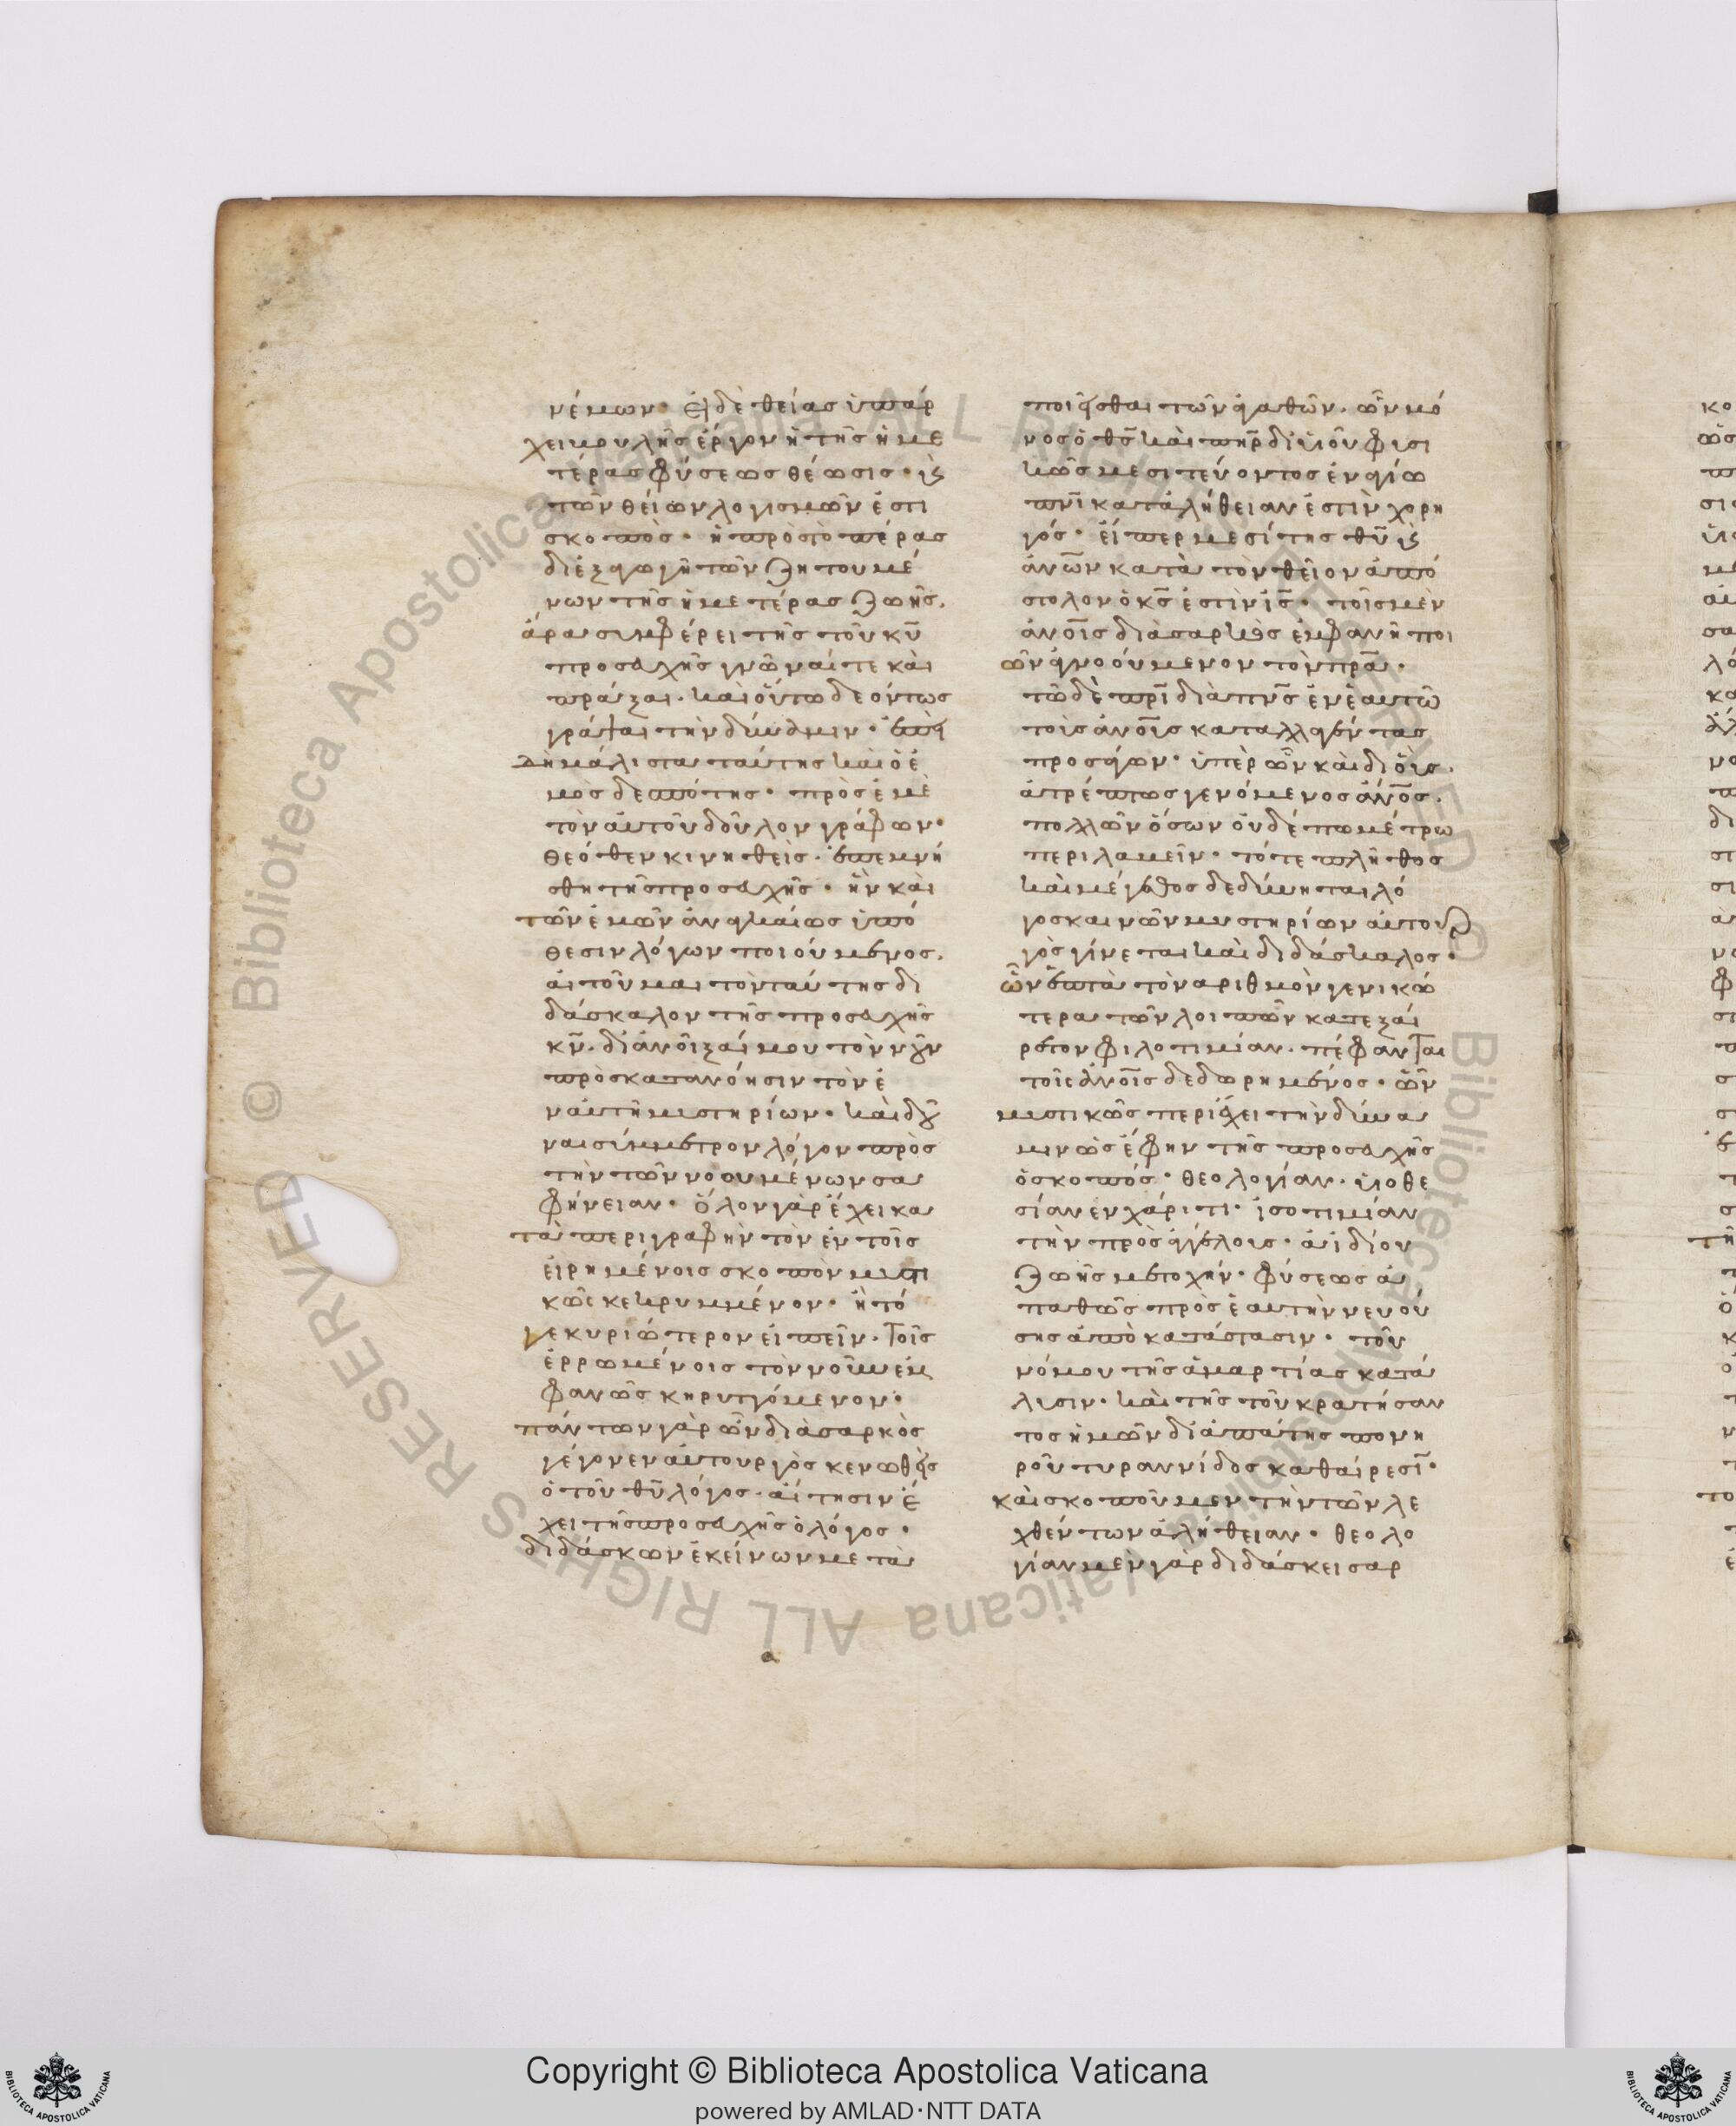 νέμων· εἰ δὲ θείας ὑπάρ
χει βουλῆς ἔργον ἡ τῆς ἡμε
τέρας φύσεως θέωσις· ϗ
τῶν θείων λογισμῶν ἐστι
σκοπὸς· ἡ πρὸς τὸ πέρας
διεξαγωγὴ τῶν ζητουμέ
νων τῆς ἡμετέρας ζωῆς.
ἄρα συμφέρει τῆς τοῦ κ̅υ̅
προσευχῆς γνῶναί τε καὶ
πράξαι. καὶ οὕτω δεόντως
γράψαι τὴν δύναμιν· ἐπει
δὴ μάλιστα ταύτης καὶ ὁ ἐ
μὸς δεσπότης· πρὸς ἐμὲ
τὸν αὐτοῦ δοῦλον γράφων·
θεόθεν κινηθεὶς. ἐπεμνή
σθη τῆς προσευχῆς· ἣν καὶ
τῶν ἐμῶν ἀναγκαίως ὑπό
θεσιν λόγων ποιούμενος.
αἰτοῦμαι τὸν ταύτης δι
δάσκαλον τῆς προσευχῆς
κ̅ν̅. διανοῖξαί μου τὸν νοῦν
πρὸς κατανόησιν τῶν ἐ
ν αὐτῇ μυστηρίων· καὶ δοῦ
ναι σύμμετρον λόγον πρὸς
τὴν τῶν νοουμένων σα
φήνειαν· ὅλον γὰρ ἔχει κα
τὰ περιγραφὴν τὸν ἐν τοῖς
εἰρημένοις σκοπὸν μυστι
κῶς κεκρυμμένον· ἢ τό
γε κυριώτερον εἰπεῖν. τοῖς
ἐρρωμένοις τὸν νοῦν ἐμ
φανῶς κηρυττόμενον·
πάντων γὰρ ὧν διὰ σαρκὸς
γέγονεν αὐτουργὸς κενωθεὶς
ὁ τοῦ θ̅υ̅ λόγος. αἴτησιν ἔ
χει τῆς προσευχῆς ὁ λόγος·
διδάσκων ἐκείνων μετα
ποιεῖσθαι τῶν ἀγαθῶν. ὧν μό
νος ὁ θ̅ς̅ καὶ π̅η̅ρ̅ δι' υἱοῦ φυσι
κῶς μεσιτεύοντος ἐν ἁγίω
π̅ν̅ι̅ κατ' ἀλήθειαν ἐστὶν χορη
γός· εἴπερ μεσίτης θ̅υ̅ ϗ
ἀ̅ν̅ω̅ν̅ κατὰ τὸν θεῖον ἀπό
στολον ὁ κ̅ς̅ ἐστὶν ι̅ς̅· τοῖς μὲν
ἀ̅ν̅ο̅ι̅ς̅ διὰ σαρκὸς ἐμφανῆ ποι
ῶν ἀγνοούμενον τὸν π̅ρ̅α̅·
τῷ δὲ π̅ρ̅ι̅ διὰ π̅ν̅ς̅ ἐν ἑαυτῷ
τοὺς ἀ̅ν̅ο̅υ̅ς̅ καταλλαγέντας
προσάγων· ὑπὲρ ὧν καὶ δι' οὓς.
ἀτρέπτως γενόμενος ἄ̅ν̅ο̅ς̅.
πολλῶν ὅσων οὐδέπω μέτρω
περιλαβεῖν· τό τε πλῆθος
καὶ μέγεθος δεδύνηται λό
γος καινῶν μυστηρίων αὐτουρ
γὸς γίνεται καὶ διδάσκαλος·
ὧν ἑπτὰ τὸν ἀριθμὸν γενικώ
τερα τῶν λοιπῶν κατ' ἐξαί
ρετον φιλοτιμίαν. πέφανται
τοῖς ἀ̅ν̅ο̅ι̅ς̅ δεδωρημένος· ὧν
μυστικῶς περιέχει τὴν δύνα
μιν ὡς ἔφην τῆς προσευχῆς
ὁ σκοπός· θεολογίαν. υἱοθε
σίαν ἐν χάριτι· ἰσοτιμίαν
τὴν πρὸς ἀγγέλους· ἀϊδίου
ζωῆς μετοχήν· φύσεως ἀ
παθῶς πρὸς ἑαυτὴν νευού
σης ἀποκατάστασιν· τοῦ
νόμου τῆς ἁμαρτίας κατά
λυσιν· καὶ τῆς τοῦ κρατήσαν
τος ἡμῶν δι' ἀπάτης πονη
ροῦ τυραννίδος καθαίρεσι̅·
καὶ σκοποῦμεν τὴν τῶν λε
χθέντων ἀλήθειαν· θεολο
γίαν μὲν γὰρ διδάσκει σαρ
Copyright © Biblioteca Apostolica Vaticana
powered by AMLAD·NTT DATA